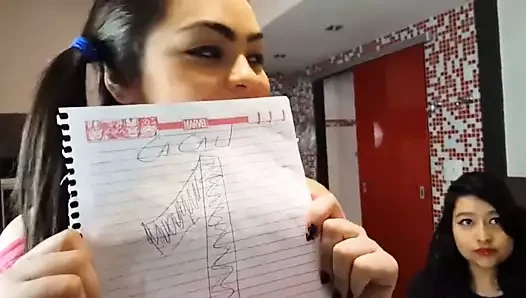 MARVEL
CACAU